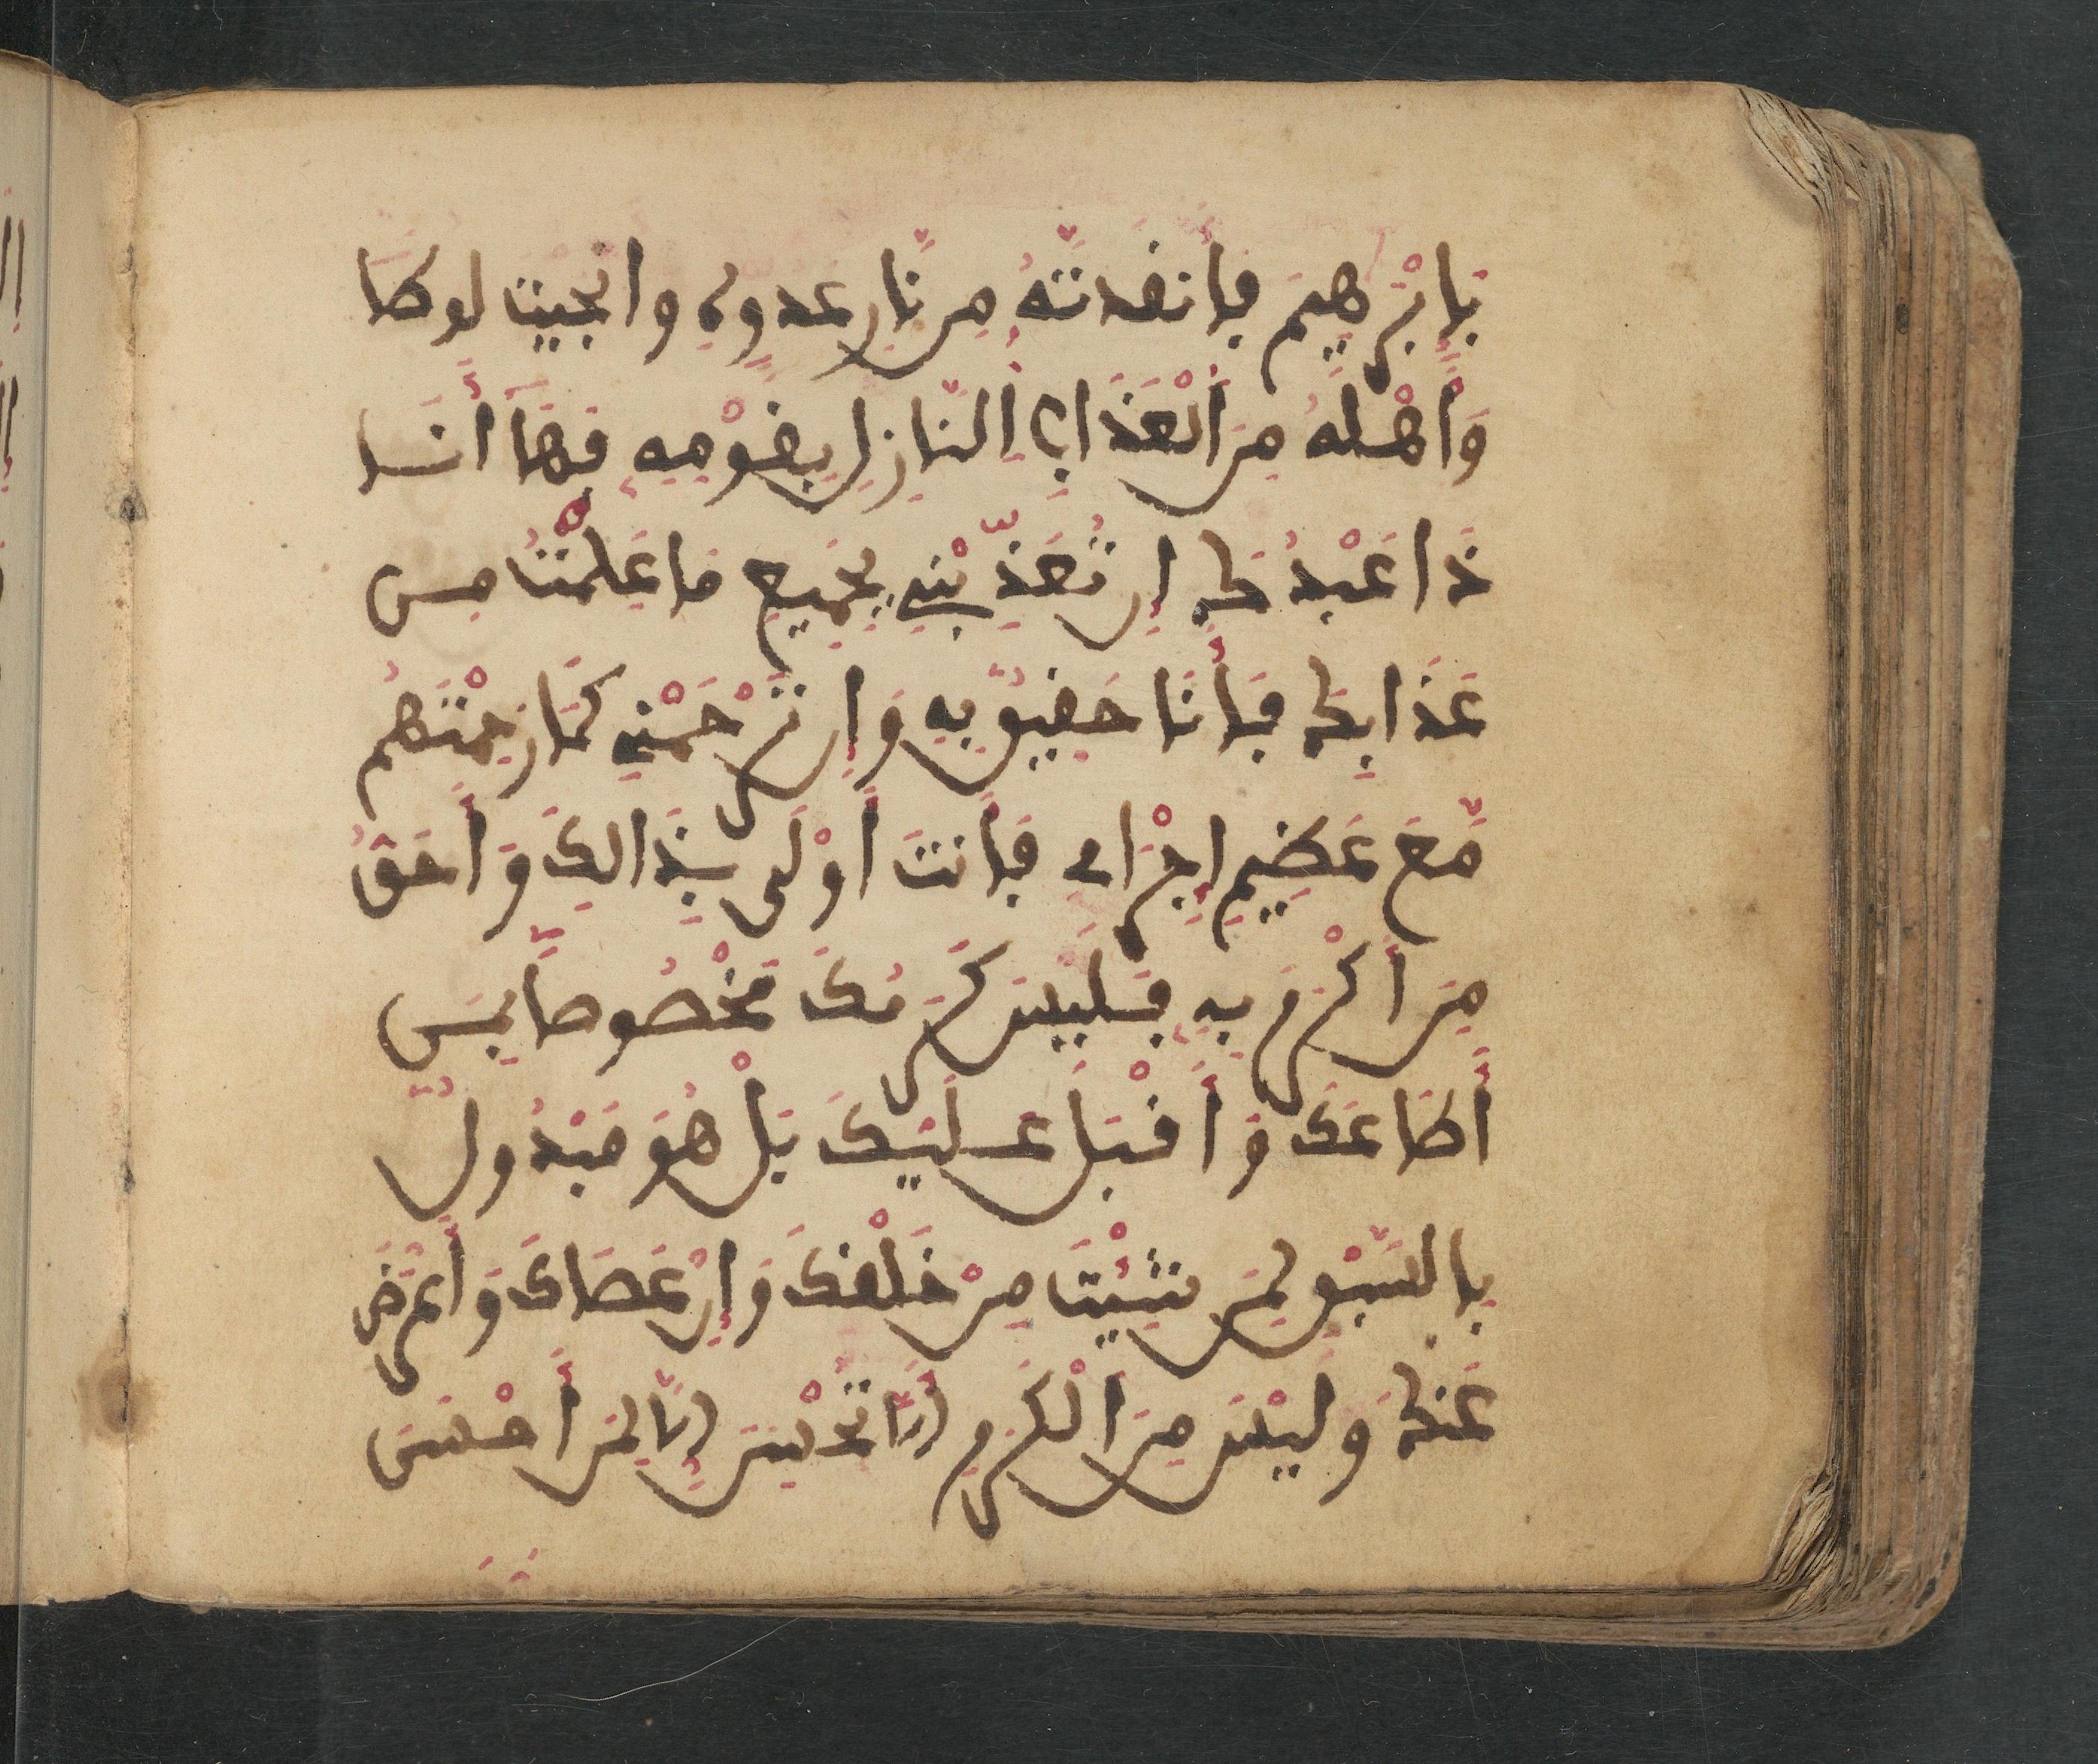 بَإِبْرٰهِيمَ فَأَنفَذتَّهُ مِن نَّارِ عَدُوِّهِ وَأَنجَيْتَ لُوطًا
وَّأَهْلَهُ مِنَ ٱلْعَذَابِ ٱلنَّازِلِ بِقَوْمِهِ فَهَآ أَنَا
ذَا عَبْدُكَ إِن تُعَذِّبْنِي بِجَمِيعِ مَا عَلِمْتُ مِن
عَذَابِكَ فَأَنَا حَقِيقٌ بِهِ وَإِن تَرْحَمْنِي كَمَا رَحِمْتَهُم
مَّعَ عَظِيمِ إِجْرَامِي فَأَنتَ أَوْلَى بِذَالِكَ وَأَحَقُّ
مَنْ أَكْرَمَ بِهِ فَلَيْسَ كَرَمُكَ مَخْصُوصًا بِمَنْ
أَطَاعَكَ وَأَقْبَلَ عَلَيْكَ بَلْ هُوَ مَبْذُولٌ
بِالسَّبْقِ لِمَن شِئْتَ مِنْ خَلْقِكَ وَإِنْ عَصَاكَ وَأَعْرَضَ
عَنكَ وَلَيْسَ مِنَ ٱلْكَرَمِ أَن لَّا تُحْسِنَ إِلَّا لِمَنْ أَحْسَنَ